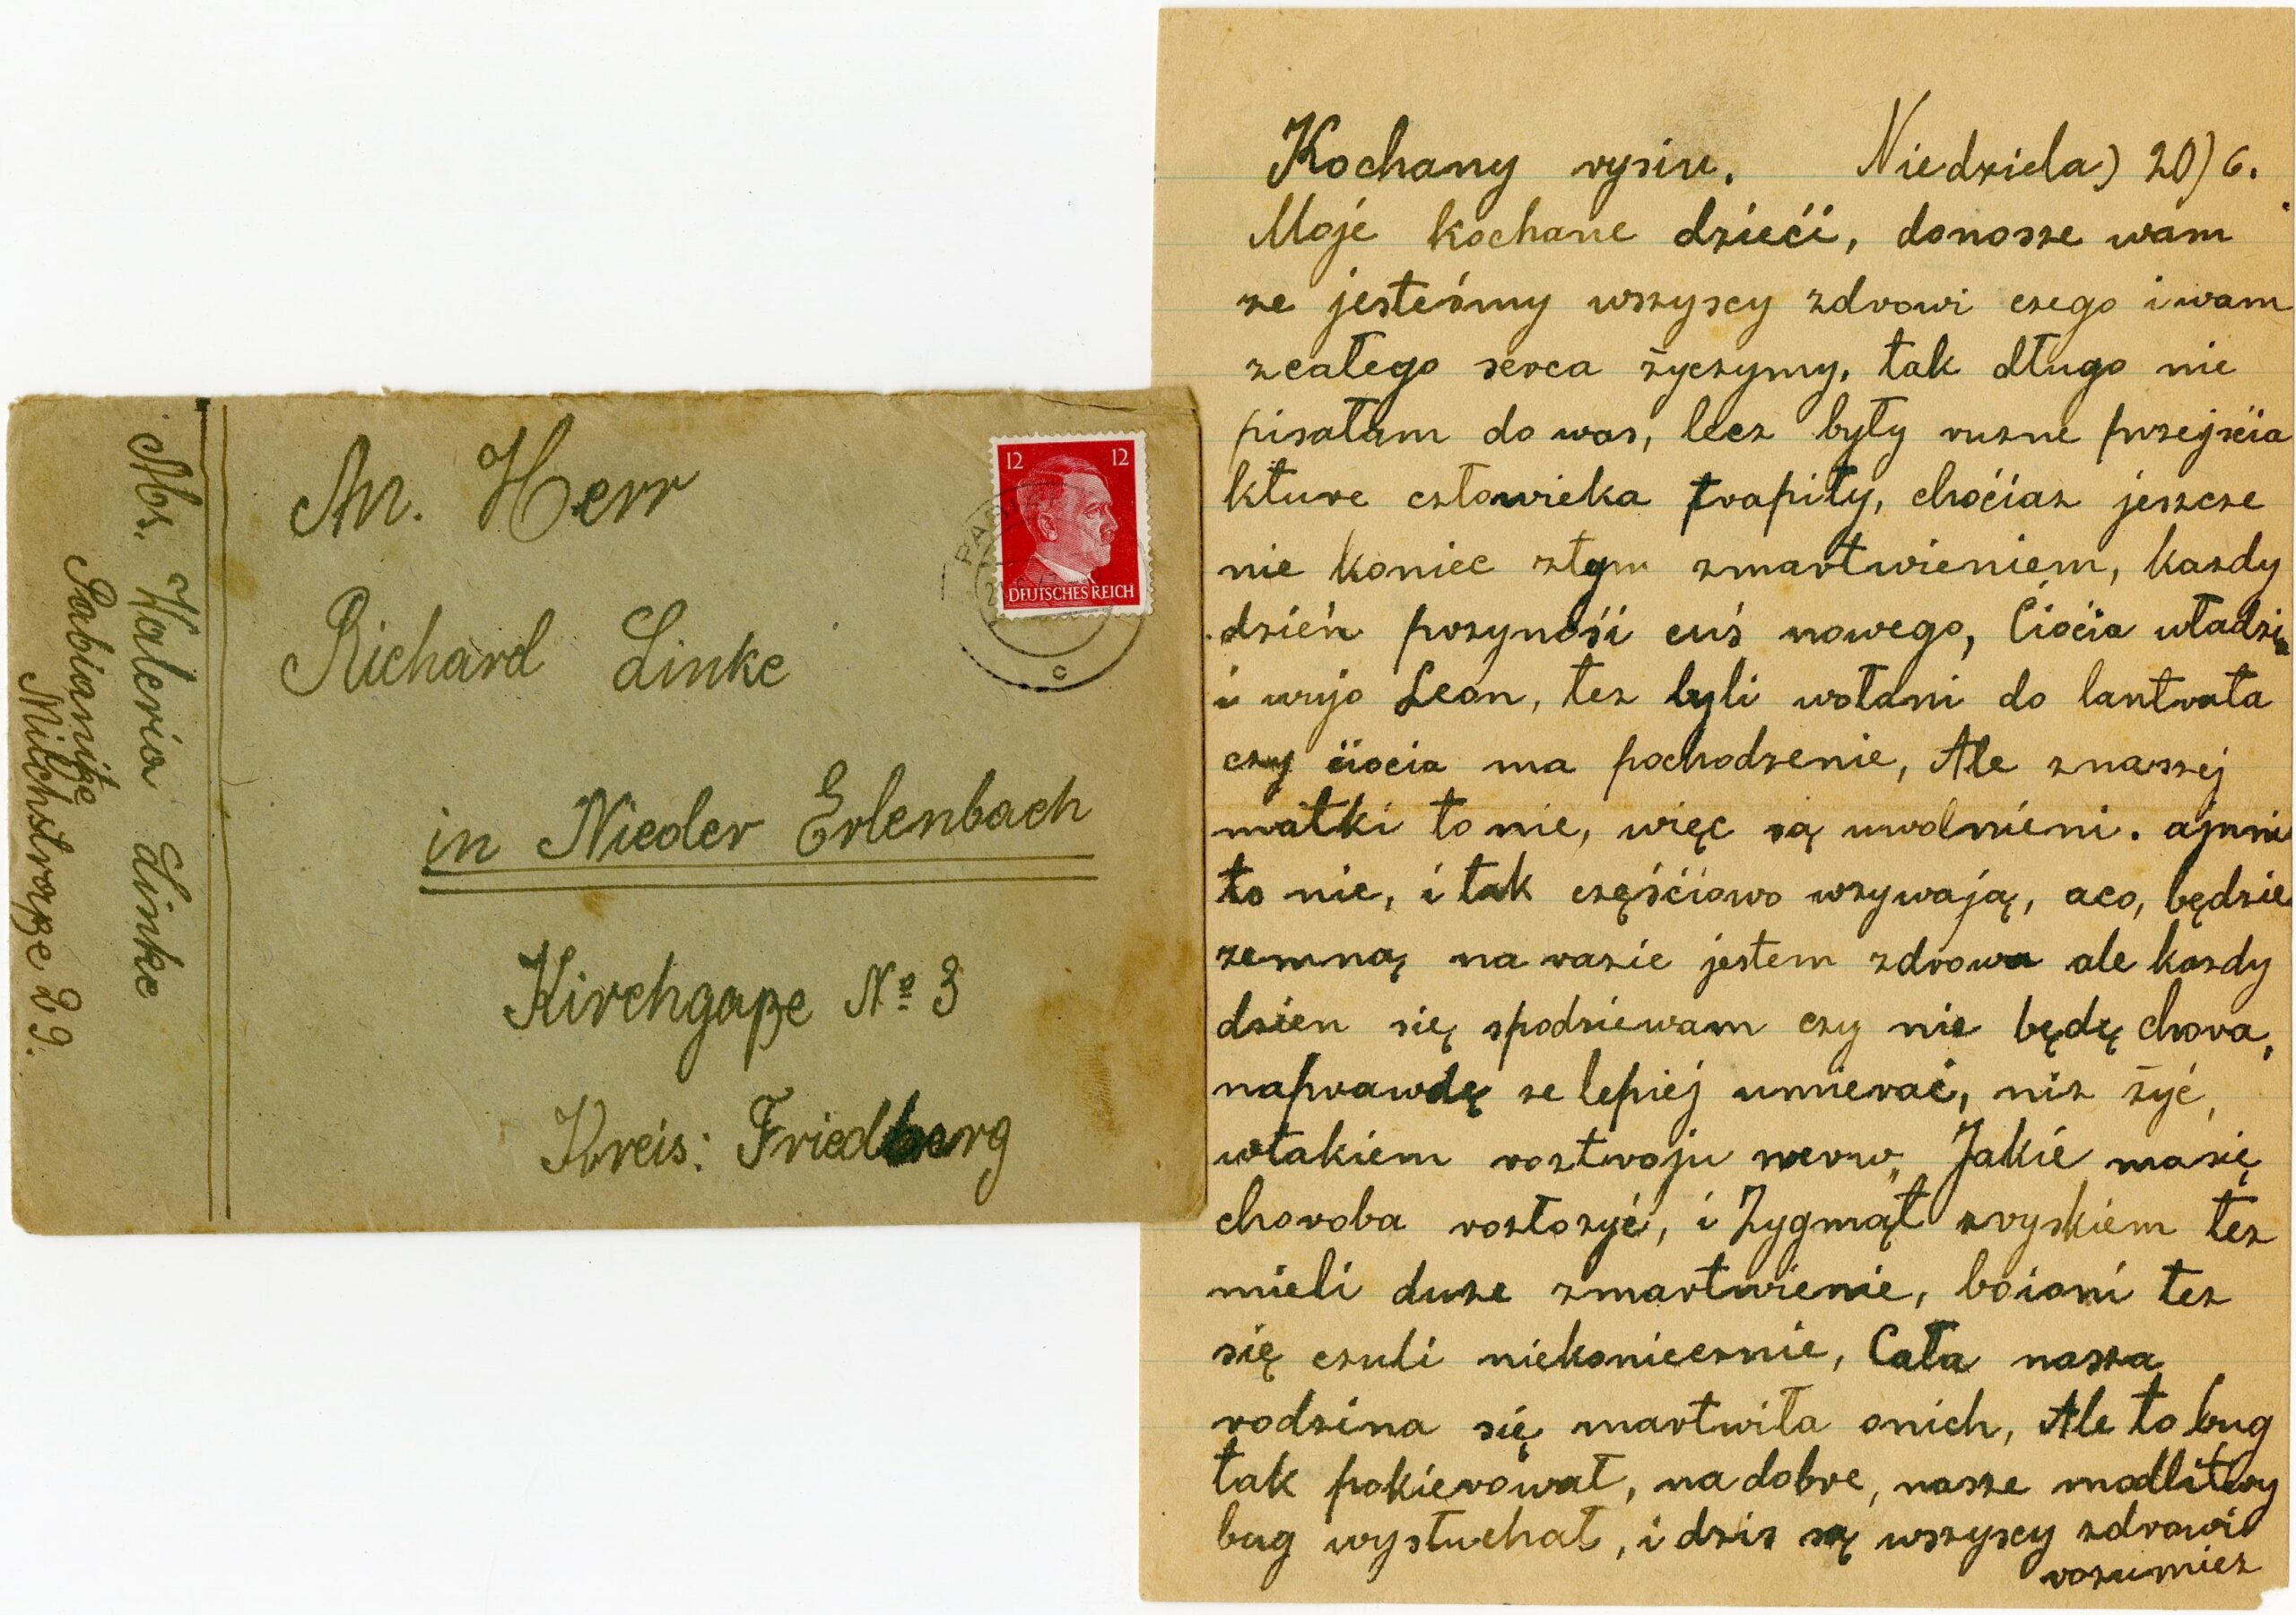 Abs. Waleria Linke
Pabianitze
Milchstraße 29.
An. Herr
Richard Linke
in Nieder Erlenbach
Kirchgaße № 3
Kreis: Friedberg
12 12
DEUTSCHES REICH
c
Kochany rysiu. Niedziela) 20) 6.
Moje kochane dzieći, donosze wam
ze jesteśmy wszyscy zdrowi czego i wam
zcałego serca życzymy, tak długo nie
pisałam do was, lecz były ruzne przejśćia
kture człowieka trapiły, choćiaz jeszcze
nie koniec ztym zmartwieniem, kazdy
dzień przynośi cuś nowego, Ćioćia władzia
i wujo Leon, tez byli wołani do lantrata
czy ćiocia ma pochodzenie, Ale znaszej
matki to nie, więc są uwolnieni. ajmnie
to nie, i tak częśćiowo wzywają, aco, będzie
zemną na razie jestem zdrowa ale kazdy
dzien się spodziewam czy nie będę chora,
naprawdę ze lepiej umierać, niz żyć,
wtakiem roztroju nerw, Jakie ma się
choroba rozłozyć, i Zygmąt zryskiem tez
mieli duze zmartwienie, boioni tez
się czuli niekoniecznie, Cała nasza
rodzina się martwiła onich, Ale to bug
tak pokierował, na dobre, nasze modlitwy
bug wysłuchał, i dzis są wszyscy zdrowi
rozumiez